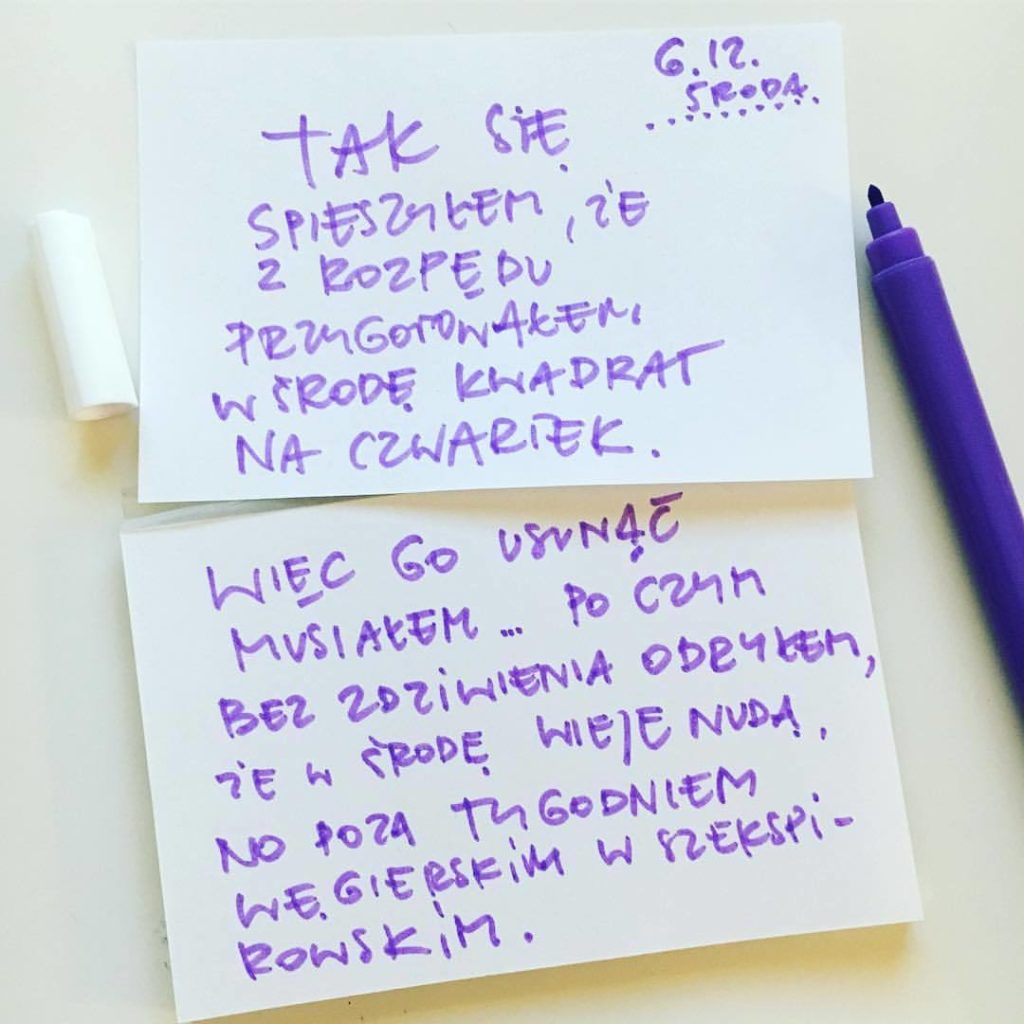 6.12.
ŚRODA.
TAK SIĘ
SPIESZYŁEM, ŻE
Z ROZPĘDU
PRZYGOTOWAŁEM,
W ŚRODĘ KWADRAT
NA CZWARTEK.
WIĘC GO USUNĄĆ
MUSIAŁEM... PO CZYM
BEZ ZDZIWIENIA ODRYŁEM,
ŻE W ŚRODĘ WIEJE NUDĄ.
NO POZA TYGODNIEM
WĘGIERSKIM W SZEKSPI-
ROWSKIM.